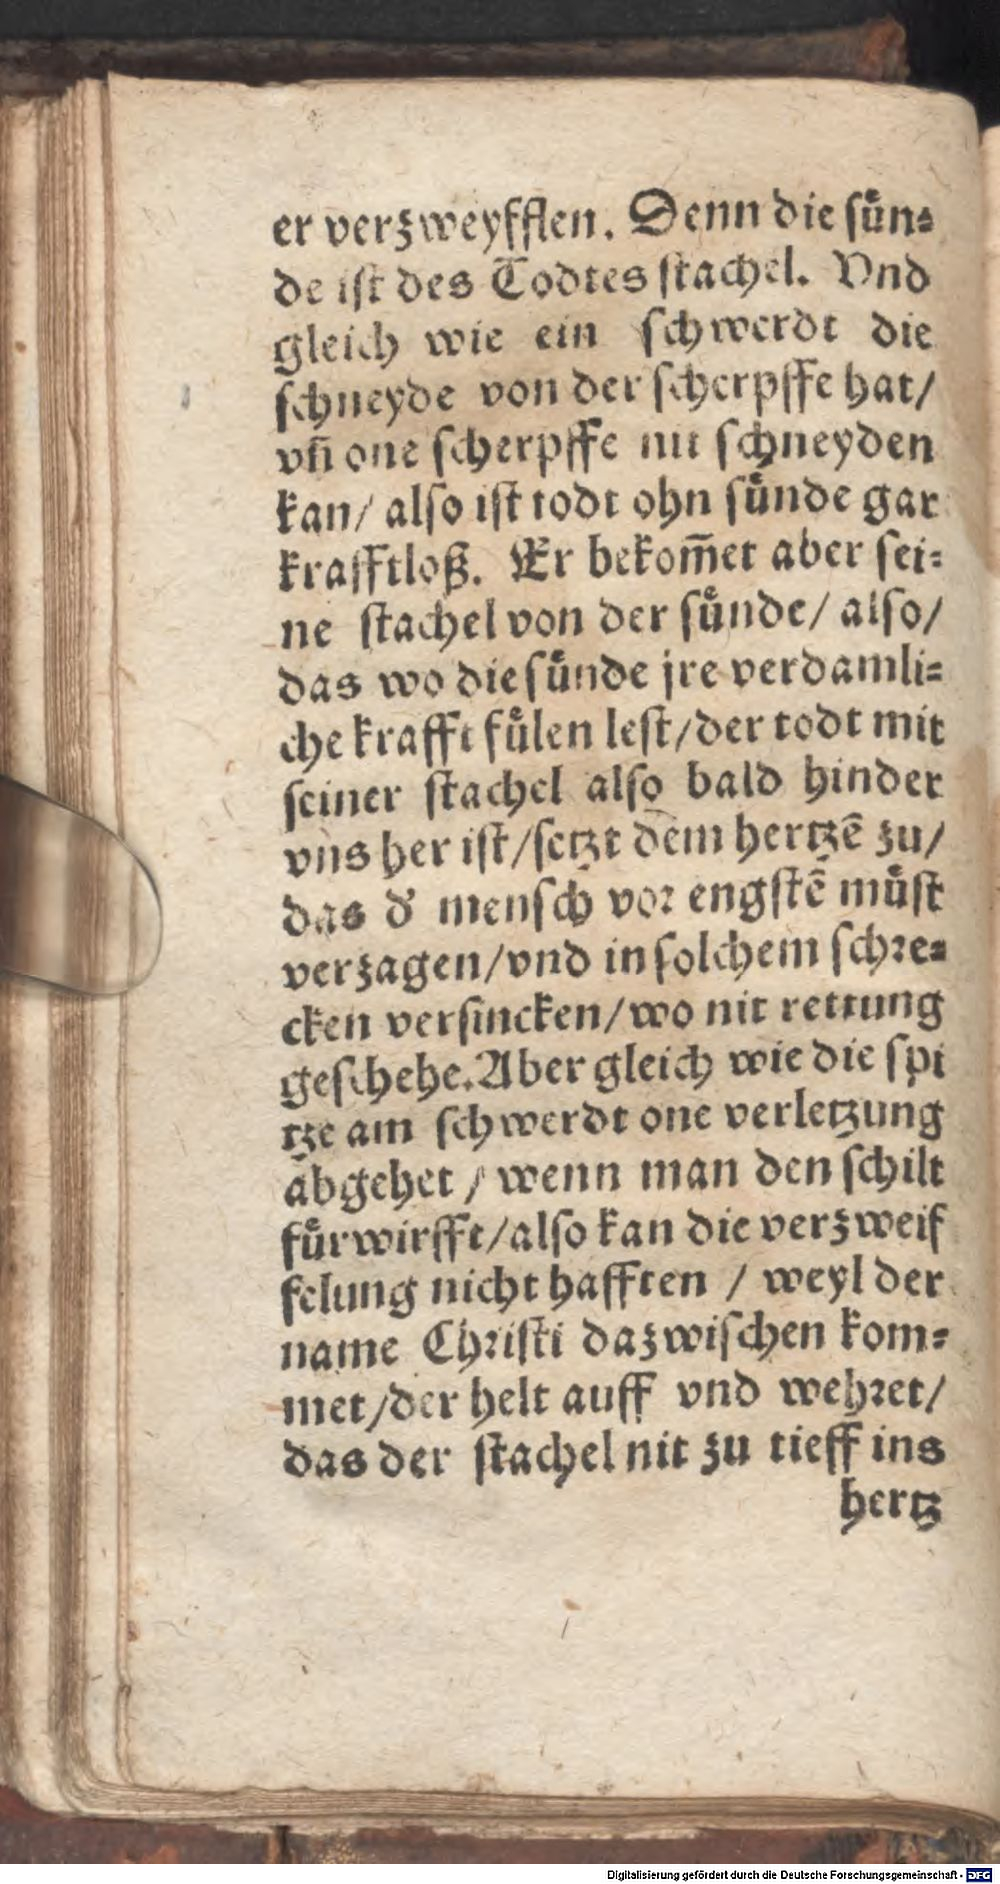 er verzweyfflen. Denn die ſuͤn⸗
de iſt des Todtes ſtachel. Vnd
gleich wie ein ſchwerdt die
ſchneyde von der ſcherpffe hat/
vñ one ſcherpffe nit ſchneyden
kan/ alſo iſt todt ohn ſuͤnde gar
krafftloß. Er bekom̃et aber ſei⸗
ne ſtachel von der ſuͤnde/ alſo/
das wo die ſuͤnde jre verdamli⸗
che krafft fuͤlen leſt/der todt mit
ſeiner ſtachel alſo bald hinder
vns her iſt/ſetzt dem hertzē zu/
das d' menſch vor engſtē muͤſt
verzagen/vnd in ſolchem ſchre⸗
cken verſincken/wo nit rettung
geſchehe. Aber gleich wie die ſpi
tze am ſchwerdt one verletzung
abgehet / wenn man den ſchilt
fuͤrwirfft/alſo kan die verzweif
felung nicht hafften / weyl der
name Chriſti dazwiſchen kom⸗
met/der helt auff vnd wehret/
das der ſtachel nit zu tieff ins
hertz
Digitalisierung gefördert durch die Deutsche Forschungsgemeinschaft - DFG